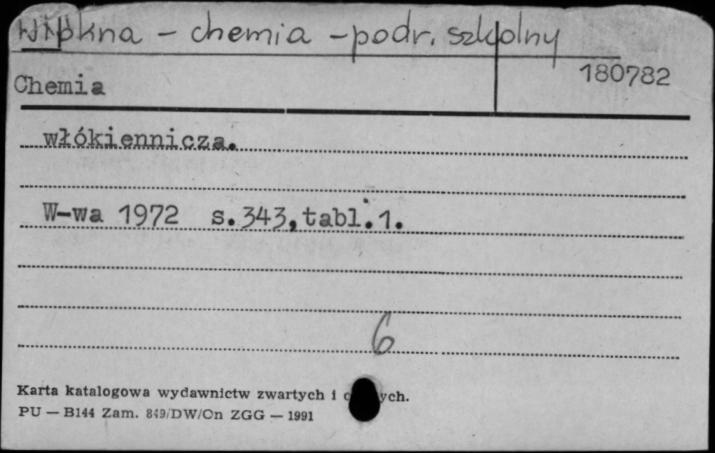 Włókna - chemia - podr. szkolny
180782
Chemia
włókiennicza.
W-wa 1972 s.343,tabl.1.
6
Karta katalogowa wydawnictw zwartych i
PU — B144 Zam. 849/DW/On ZGG — 1991